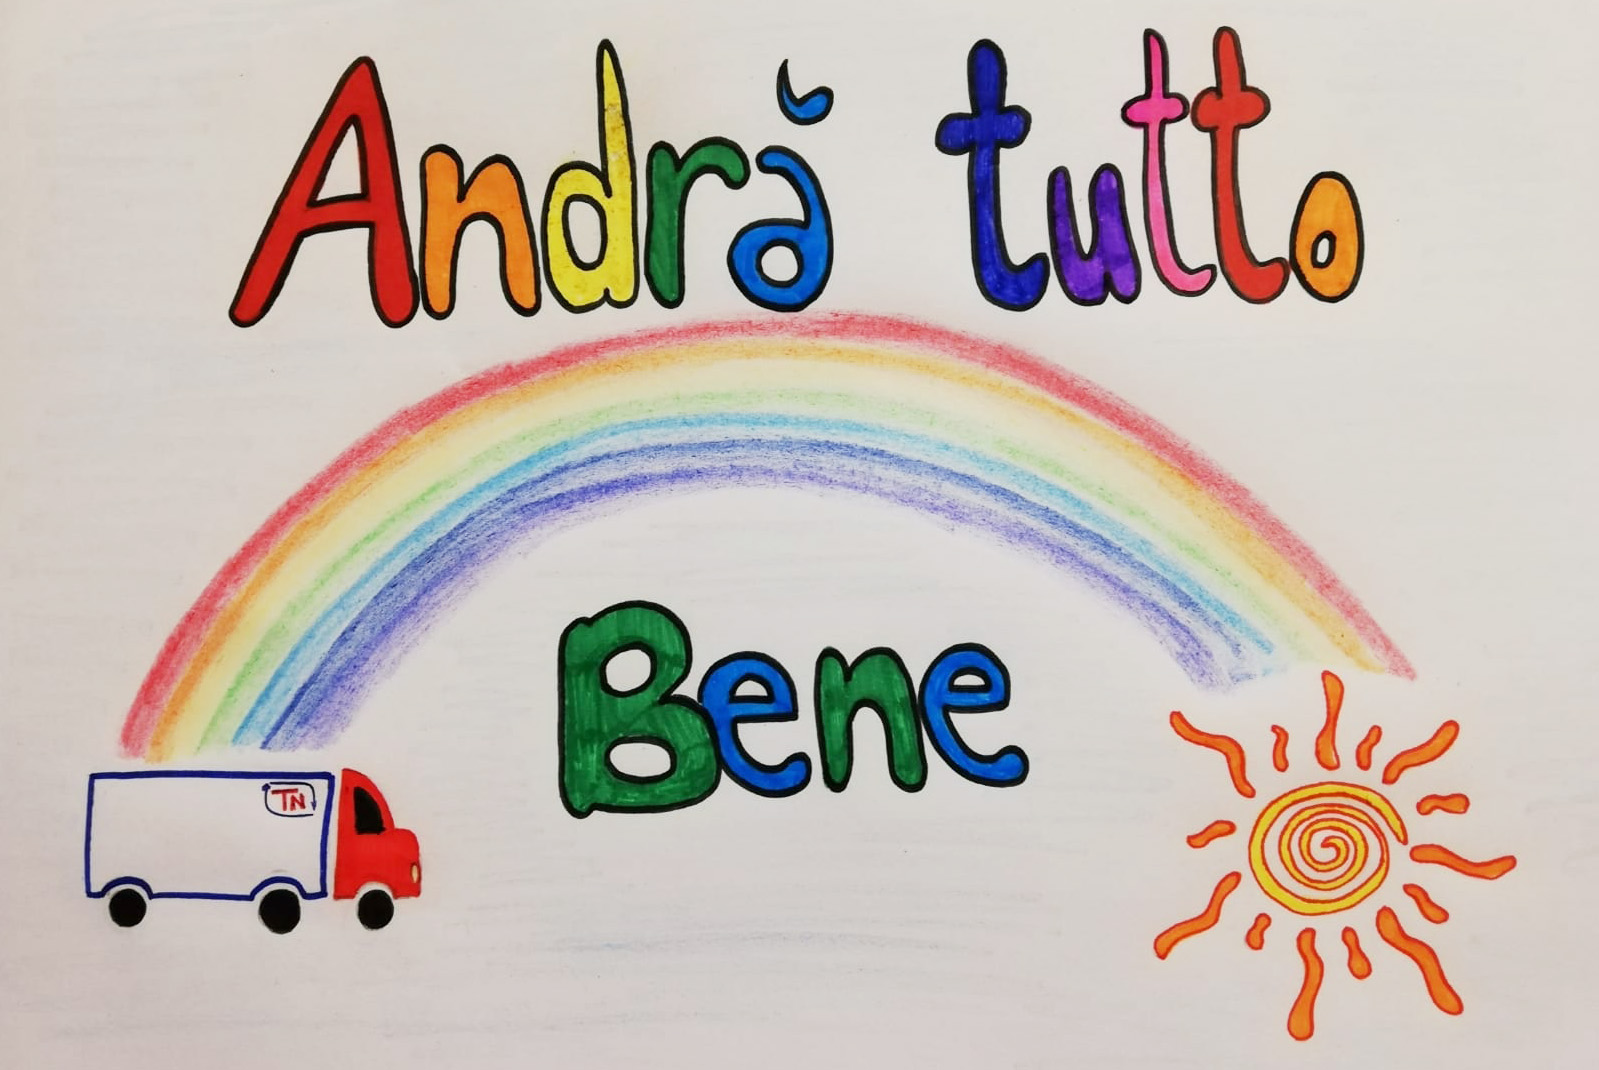 Andrà tutto
Bene
TN